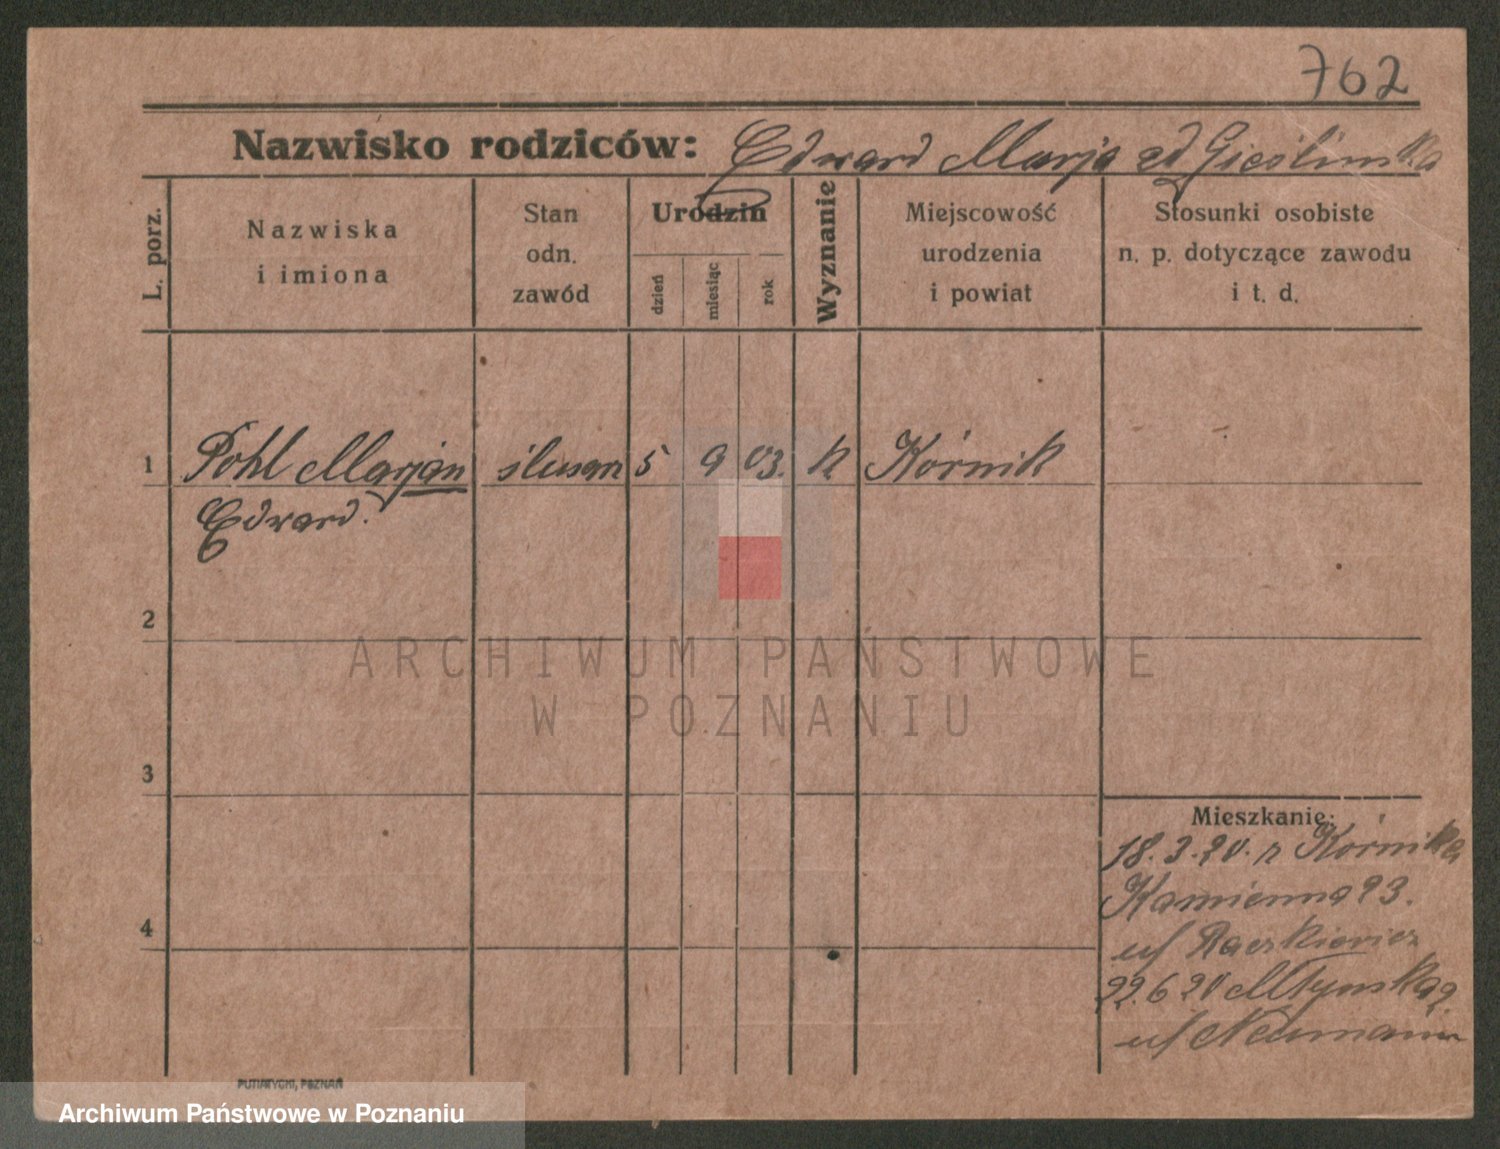 762
Nazwisko rodziców: Edward Marja zd Gieślinska
L. porz.
Nazwiska
i imiona
Stan
odn.
zawód
Urodzin
dzień
miesiąc
rok
Wyznanie
Miejscowość
urodzenia
i powiat
Stosunki osobiste
n. p. dotyczące zawodu
i t. d.
1 Pohl Marjan ślusarz 5 9 03. k Kórnik
Edward.
2
ARCHIWUM PAŃSTWOWE
W POZNANIU
3
Mieszkanie:
18. 3. 20. z Kórnika
Kamienna 23.
u/ Raczkiewicz
4
22. 6 20 Młynska 2
u/ Neumann
PUTIATYCKI, POZNAŃ
Archiwum Państwowe w Poznaniu